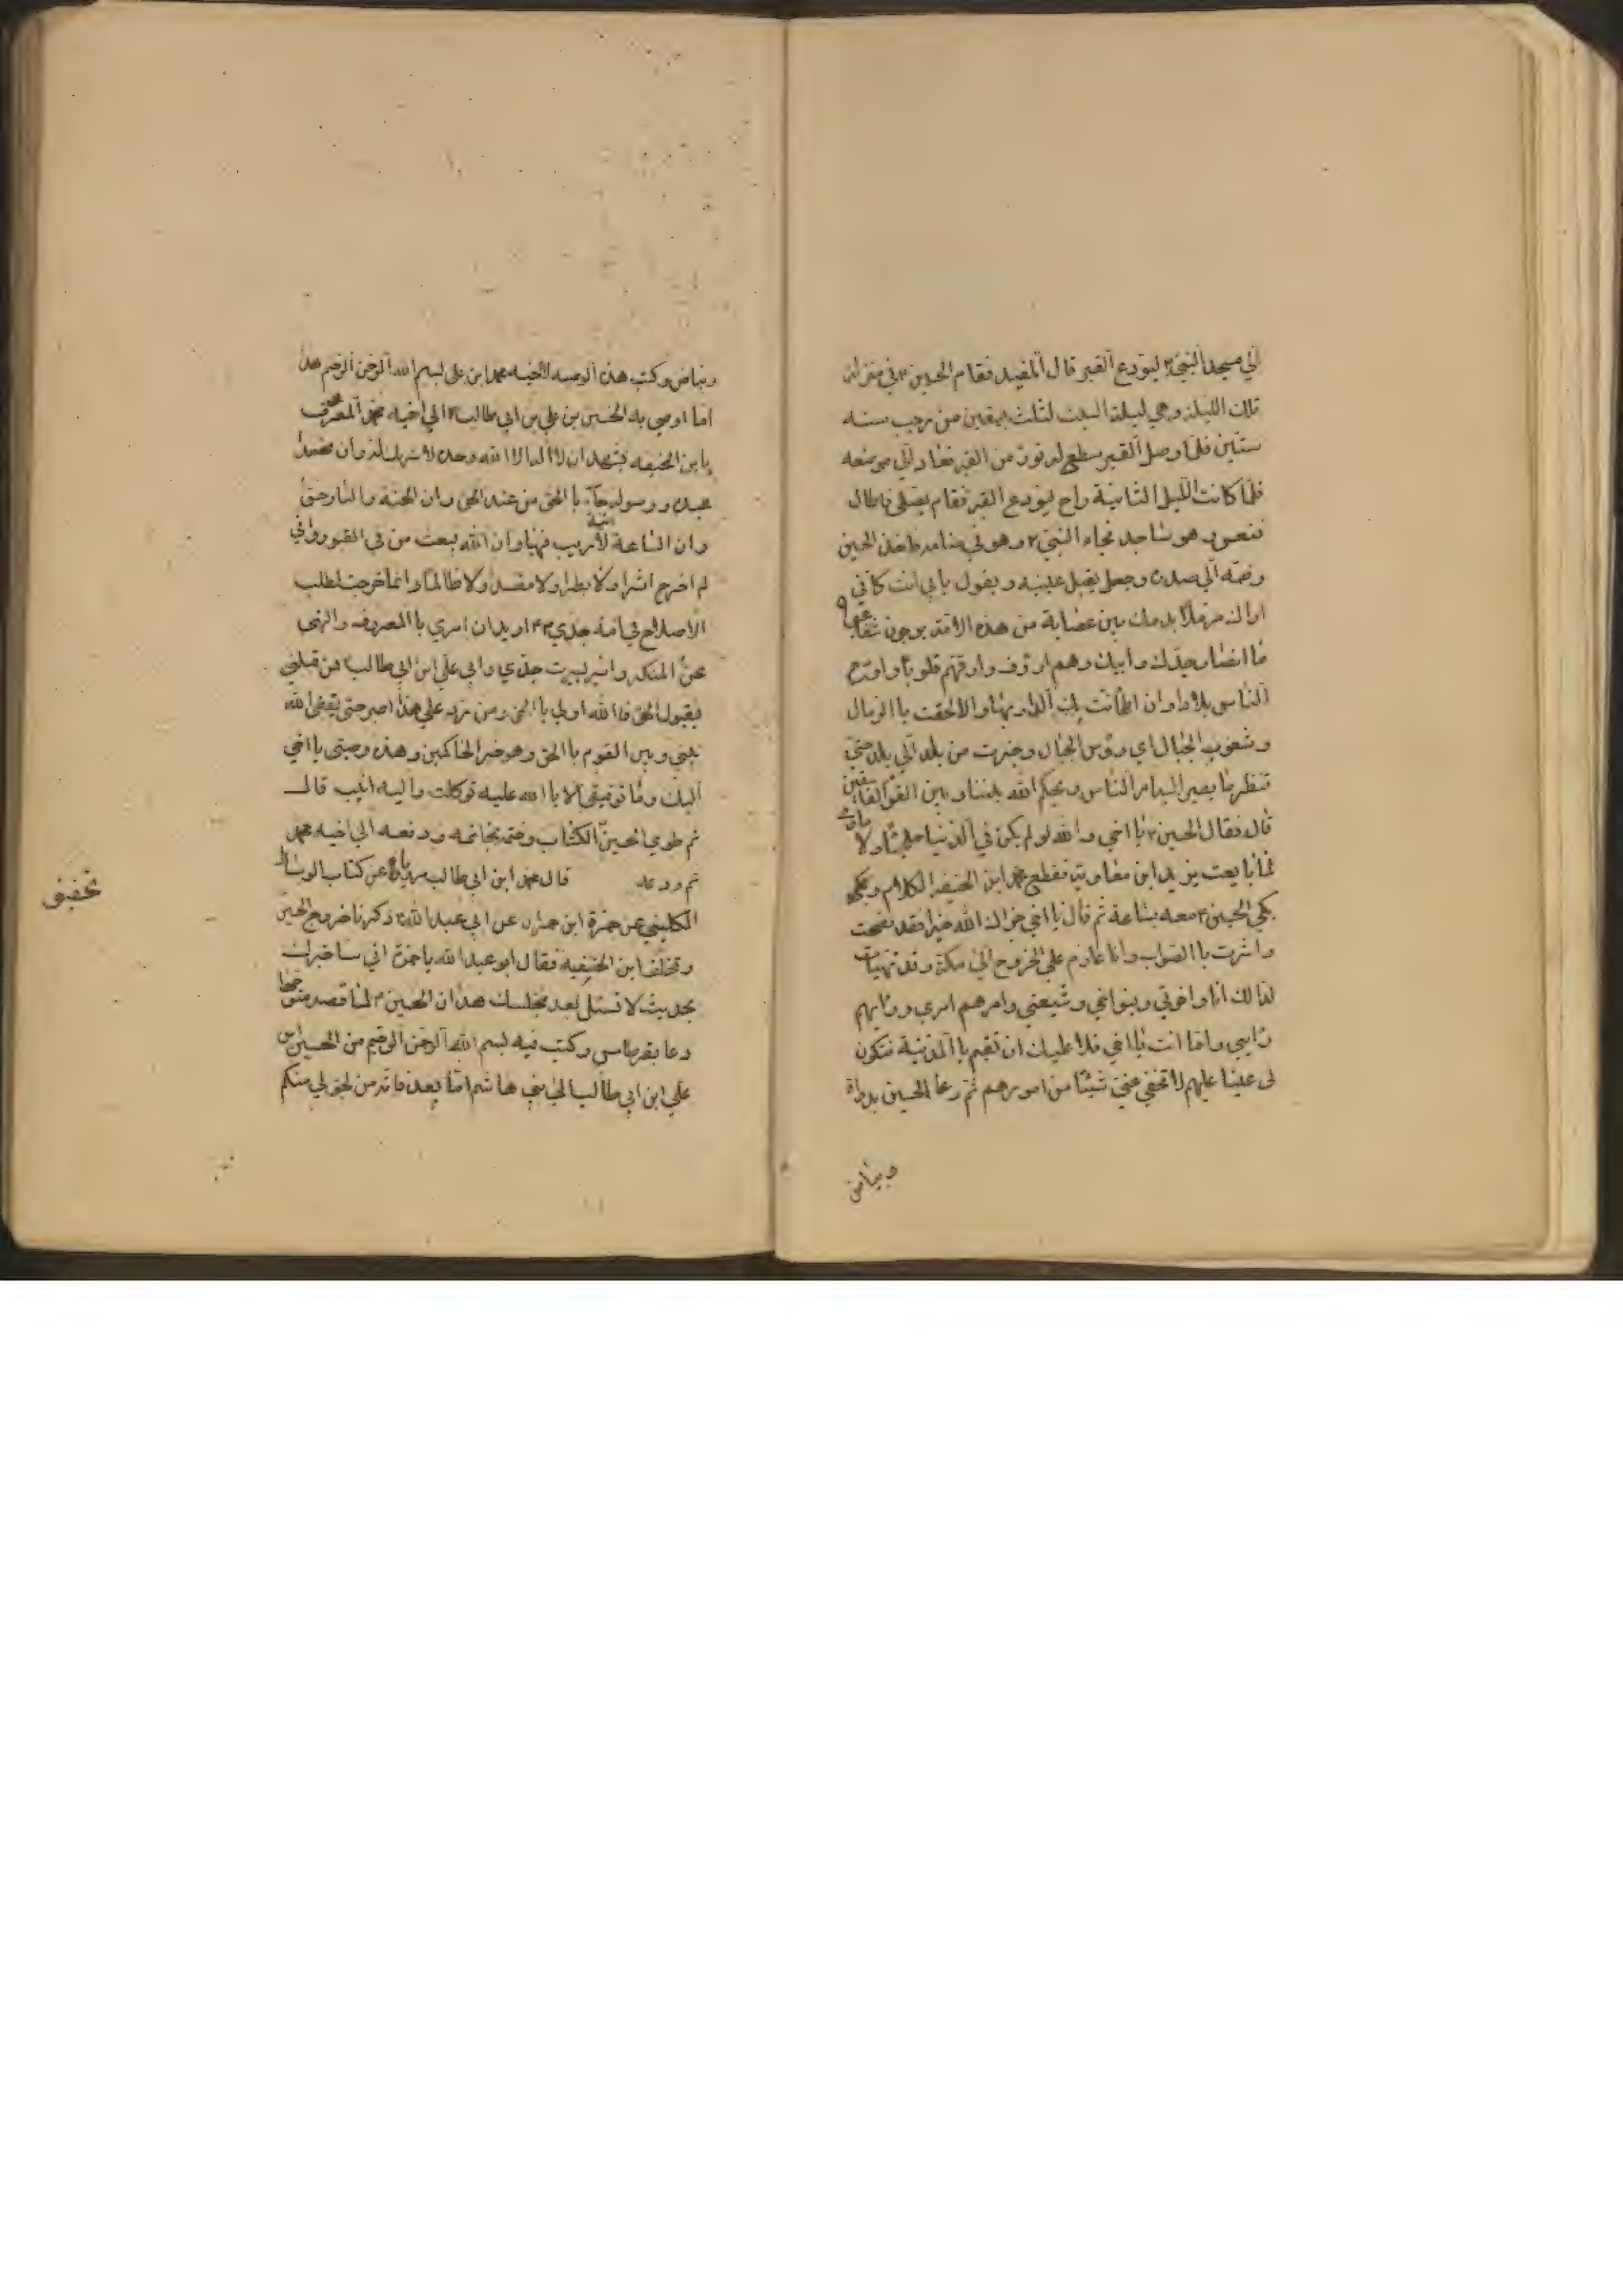 الي مسجد النبي ٣ ليودع القبر قال المفيد فقام الحسين ٣ في منزله
تلك الليلة وهي ليلة السبت لثلث بقين من رجب سنه
ستين فلما وصل القبر سطع له نور من القبر فعاد الي موضعه
فلما كانت الليل الثانية راح ليودع القبر فقام يصلي فاطال
فنعس وهو ساجد فجاء النبي ٢ وهو في منامه فاخذ الحسين
وضمه الي صدره وجعل يقبل عينيه ويقول بابي انت كاني
اراك مرملا بدمك بين عصابة من هذه الامة يرجون شفاعتي
الناس بلاءا وان اطمانت بك الدار بها والا لحقت باالرمال
وشعوب الجبال اي رؤس الجبال وجزت من بلد الي بلد حتي
تنظر ما يصير اليه امر الناس ويحكم الله بيننا وبين القوم الفاسقين
قال فقال الحسين ٢ يا اخي والله لو لم يكن في الدنيا ملجئا ولا ماوي
لما بايعت يزيد ابن معاوية فقطع محمد ابن الحنفيه الكلام وبكي
بكي الحسين ٢ معه ساعة ثم قال يا اخي جزاك الله خيرا فقد نصحت
واشرت باالصواب وانا عازم علي الخروج الي مكة وقد تهيأت
لذالك انا واخوتي وبنو اخي وشيعتي وامرهم امري ورايهم
رايي واما انت يا اخي فلا عليك ان تقيم باالمدينة فتكون
لي عينا عليهم لا تخفي عني شيئا من امورهم ثم دعا الحسين بدواة
وبياض
وبياض وكتب هذه الوصيه لاخيه محمد ابن علي بسم الله الرحمن الرحيم هذا
اما اوصي به الحسين بن علي بن ابي طالب ٢ الي اخيه محمد المعروف
يابن الحنفيه يشهد ان لا اله الا الله وحده لا شريك له وان محمدا
عبده ورسوله جآء باالحق من عند الحق وان الجنة والنار حق
وان الساعة اتية لا ريب فيها وان الله يبعث من في القبور واني
لم اخرج اشرا ولا بطرا ولا مفسدا ولا ظالما وانما خرجت لطلب
الاصلاح في امة جدي ٢٣ اريد ان امري باالمعروف والنهي
عن المنكر واسير بسيرت جدي وابي علي ابن ابي طالب فمن قبلني
بقبول الحق فاالله اولي باالحق ومن رد علي هذا اصبر حتي يقضي الله
بيني وبين القوم باالحق وهو خير الحاكمين وهذه وصيتي يا اخي
اليك وما توفيقي الا باالله عليه توكلت واليه انيب قال
ثم طوي الحسين الكتاب وختمه بخاتمه ودفعه الي اخيه محمد
ثم ودعه قال محمد ابن ابي طالب روينا عن كتاب الوسائل
الكليني عن حمزة ابن حمران عن ابي عبد الله ٢ ذكرنا خروج الحسين
وتخلف ابن الحنفيه فقال ابو عبد الله يا حمزة اني ساخبرك
بحديث لا تسئل بعد مجلسك هذا ان الحسين ٢ لما قصد متوجها
دعا بقرطاس وكتب فيه بسم الله الرحمن الرحيم من الحسين بن
علي ابن ابي طالب الي بني هاشم اما بعد فانه من لحق لي منكم